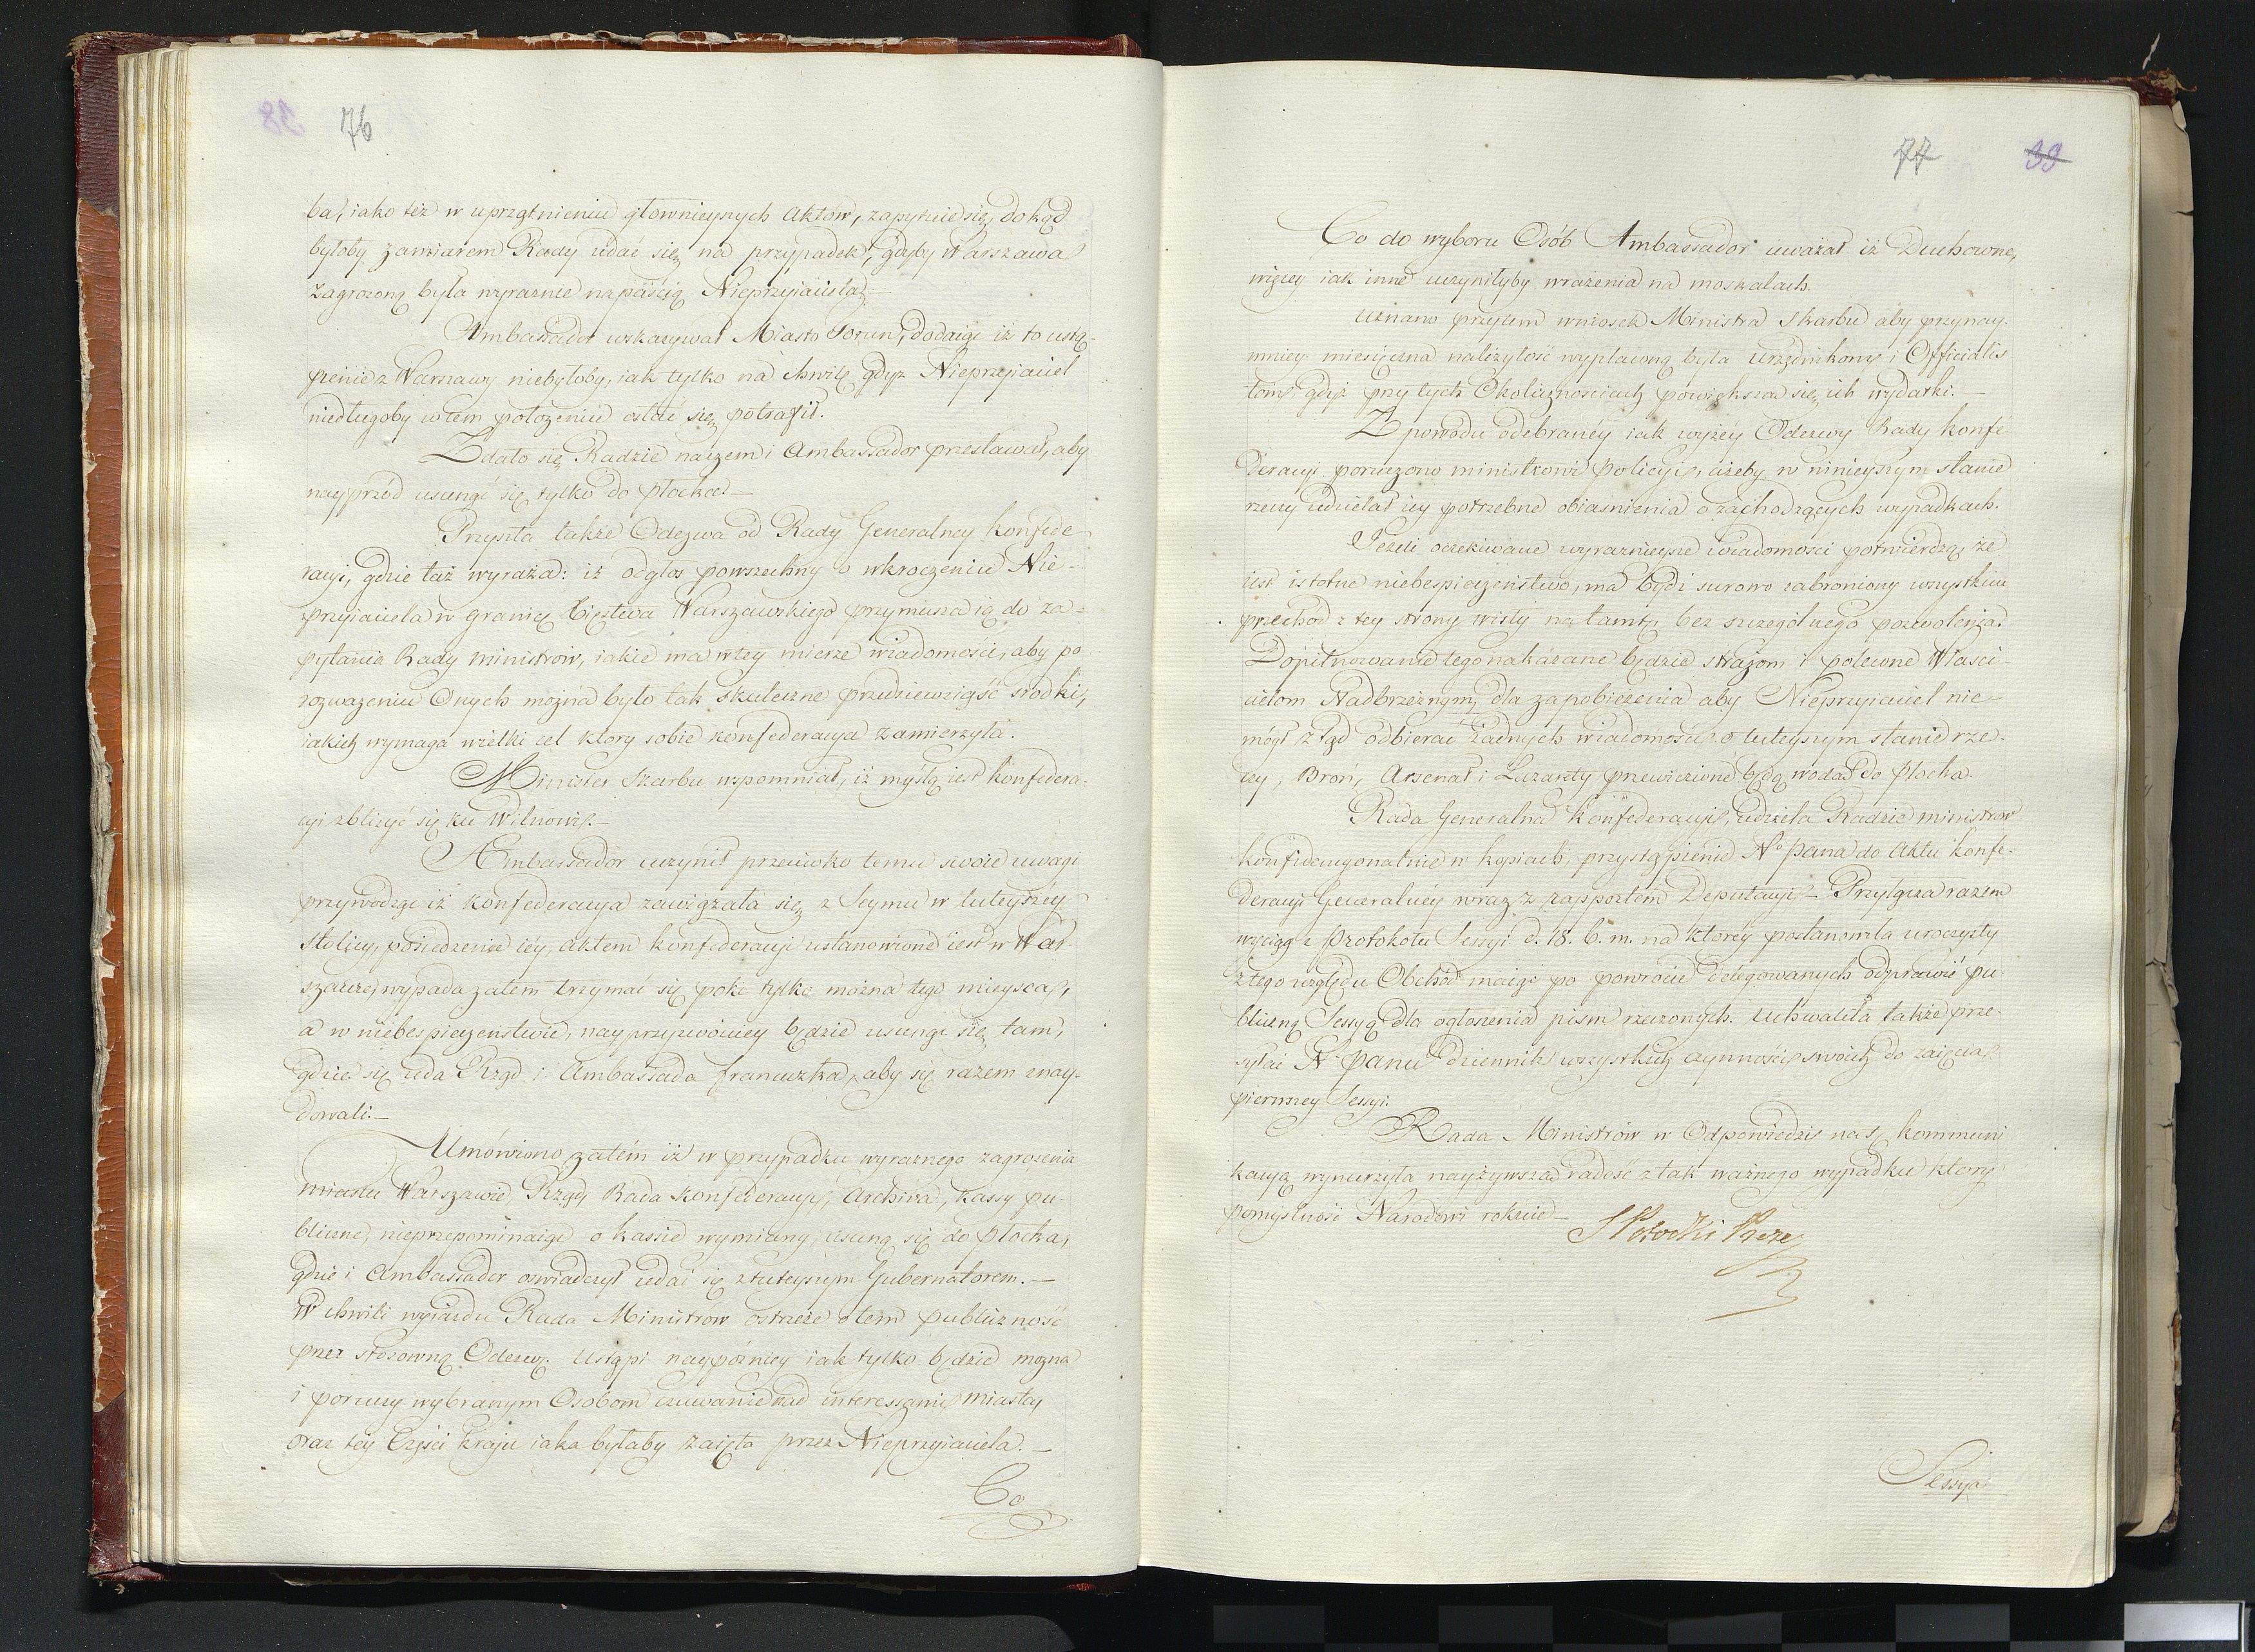 76
ba, iako też w uprzątnieniu głownieyszych Aktów, zapytuie się, dokąd
byłoby zamiarem Rady udać się na przypadek, gdyby Warszawa
zagrożoną była wyraznie napaścią Nieprzyiaciela.—
Ambassador wskazywał Miasto Toruń, dodaiąc iż to ustą-
pienie z Warszawy niebyłoby, iak tylko na chwilę gdyż Nieprzyiaciel
niedługoby w tem położeniu ostać się potrafił.
Zdało się Radzie na czem i Ambassador przestawał, aby
nayprzód usunąć się tylko do Płocka.—
Przyszła także Odezwa od Rady Generalney Konfede-
racyi, gdzie taż wyraża: iż odgłos powszechny o wkroczeniu Nie-
przyiaciela w granicę Xięstwa Warszawskiego przymusza ią do za-
pytania Rady Ministrów, iakie ma w tey mierze wiadomości, aby po
rozważeniu Onych można było tak skuteczne przedsiewziąść srodki,
iakich wymaga wielki cel ktory sobie konfederacya zamierzyła.
Minister Skarbu wspomniał, iż myślą iest Konfedera-
cyi zbliżyć się ku Wilnowi.—
Ambassador uczynił przeciwko temu swoie uwagi
przywodząc iż Konfederacya zawiązała się z Seymu w tuteyszéy
Stolicy, posiedzenie iéy, aktem konfederacyi ustanowione iest w War-
szawie, wypada zatem trzymać się poki tylko można tego mieysca,
a w niebespieczeństwie, nayprzyzwoiciey będzie usunąć się tam,
gdzie się uda Rząd i Ambassada francuzka, aby się razem znay-
dowali.—
Umówiono zatém iż w przypadku wyraznego zagrożenia
miastu Warszawie, Rząd, Rada Konfederacyi, Archiva, Kassy pu-
bliczne, nieprzepominaiąc o kassie wymiany, usuną się do Płocka,
gdzie i Ambassador oswiadczył udać się z tuteyszym Gubernatorem.—
W chwili wyiazdu Rada Ministrow ostrzeże o tem publiczność
przez stosowną Odezwę. Ustąpi naypózniey iak tylko będzie można
i poruczy wybranym Osobom czuwanie nad interessami miasta,
oraz tey Części kraju iaka byłaby zaięta przez Nieprzyiaciela.—
Co
77
39
Co do wyboru Osób Ambassador uważał iż Duchowne,
więcey iak inne uczyniłyby wrażenia na moskalach.
Uznano przytem wniosek Ministra Skarbu aby przynay-
mniey miesięczna należytość wypłaconą była Urzędnikom i Officialis-
tom gdyż przy tych Okolicznosciach powiększa się ich wydatki.—
Z powodu odebranéy iak wyżéy Odezwy Rady Konfe-
deracyi poruczono ministrowi Policyi, ażeby w ninieyszym stanie
rzeczy udzielał iey potrzebne obiasnienia o zachodzących wypadkach.
Jeżeli oczekiwane wyraznieysze wiadomosci potwierdzą, że
iest istotne niebespieczeństwo, ma bydź surowo zabroniony wszystkim
przechod z tey strony wisły na tamtę, bez szczególnego pozwolenia.
Dopilnowanie tego nakazane będzie strażom i polecone Własci-
cielom Nadbrzeżnym, dla zapobieżenia aby Nieprzyiaciel nie
mógł ztąd odbierać żadnych wiadomości o tuteyszym stanie rze-
czy, Broń, Arsenał i Lazarety przewiezione będą wodą do Płocka.
Rada Generalna Konfederacyi, udziela Radzie ministrow
konfidencyonalnie w kopiach, przystąpienie No Pana do Aktu Konfe-
deracyi Generalnéy wraz z rapportem Deputacyi.— Przyłącza razem
wyciąg z Protokołu Sessyi d. 18. b. m. na ktoréy postanowiła uroczysty
z tego względu Obchód maiąc po powrocie delegowanych odprawić pu-
bliczną Sessyą dla ogłoszenia pism rzeczonych. Uchwaliła także prze-
syłać N. Panu dziennik wszystkich czynności swoich do zaięcia
pierwszey Sessyi.
Rada Ministrów w Odpowiedzi na tę kommuni
kacyą wynurzyła nayżywszą radość z tak ważnego wypadku ktory
pomyslność Narodowi rokuie.—
S Potocki Preze
Sessya